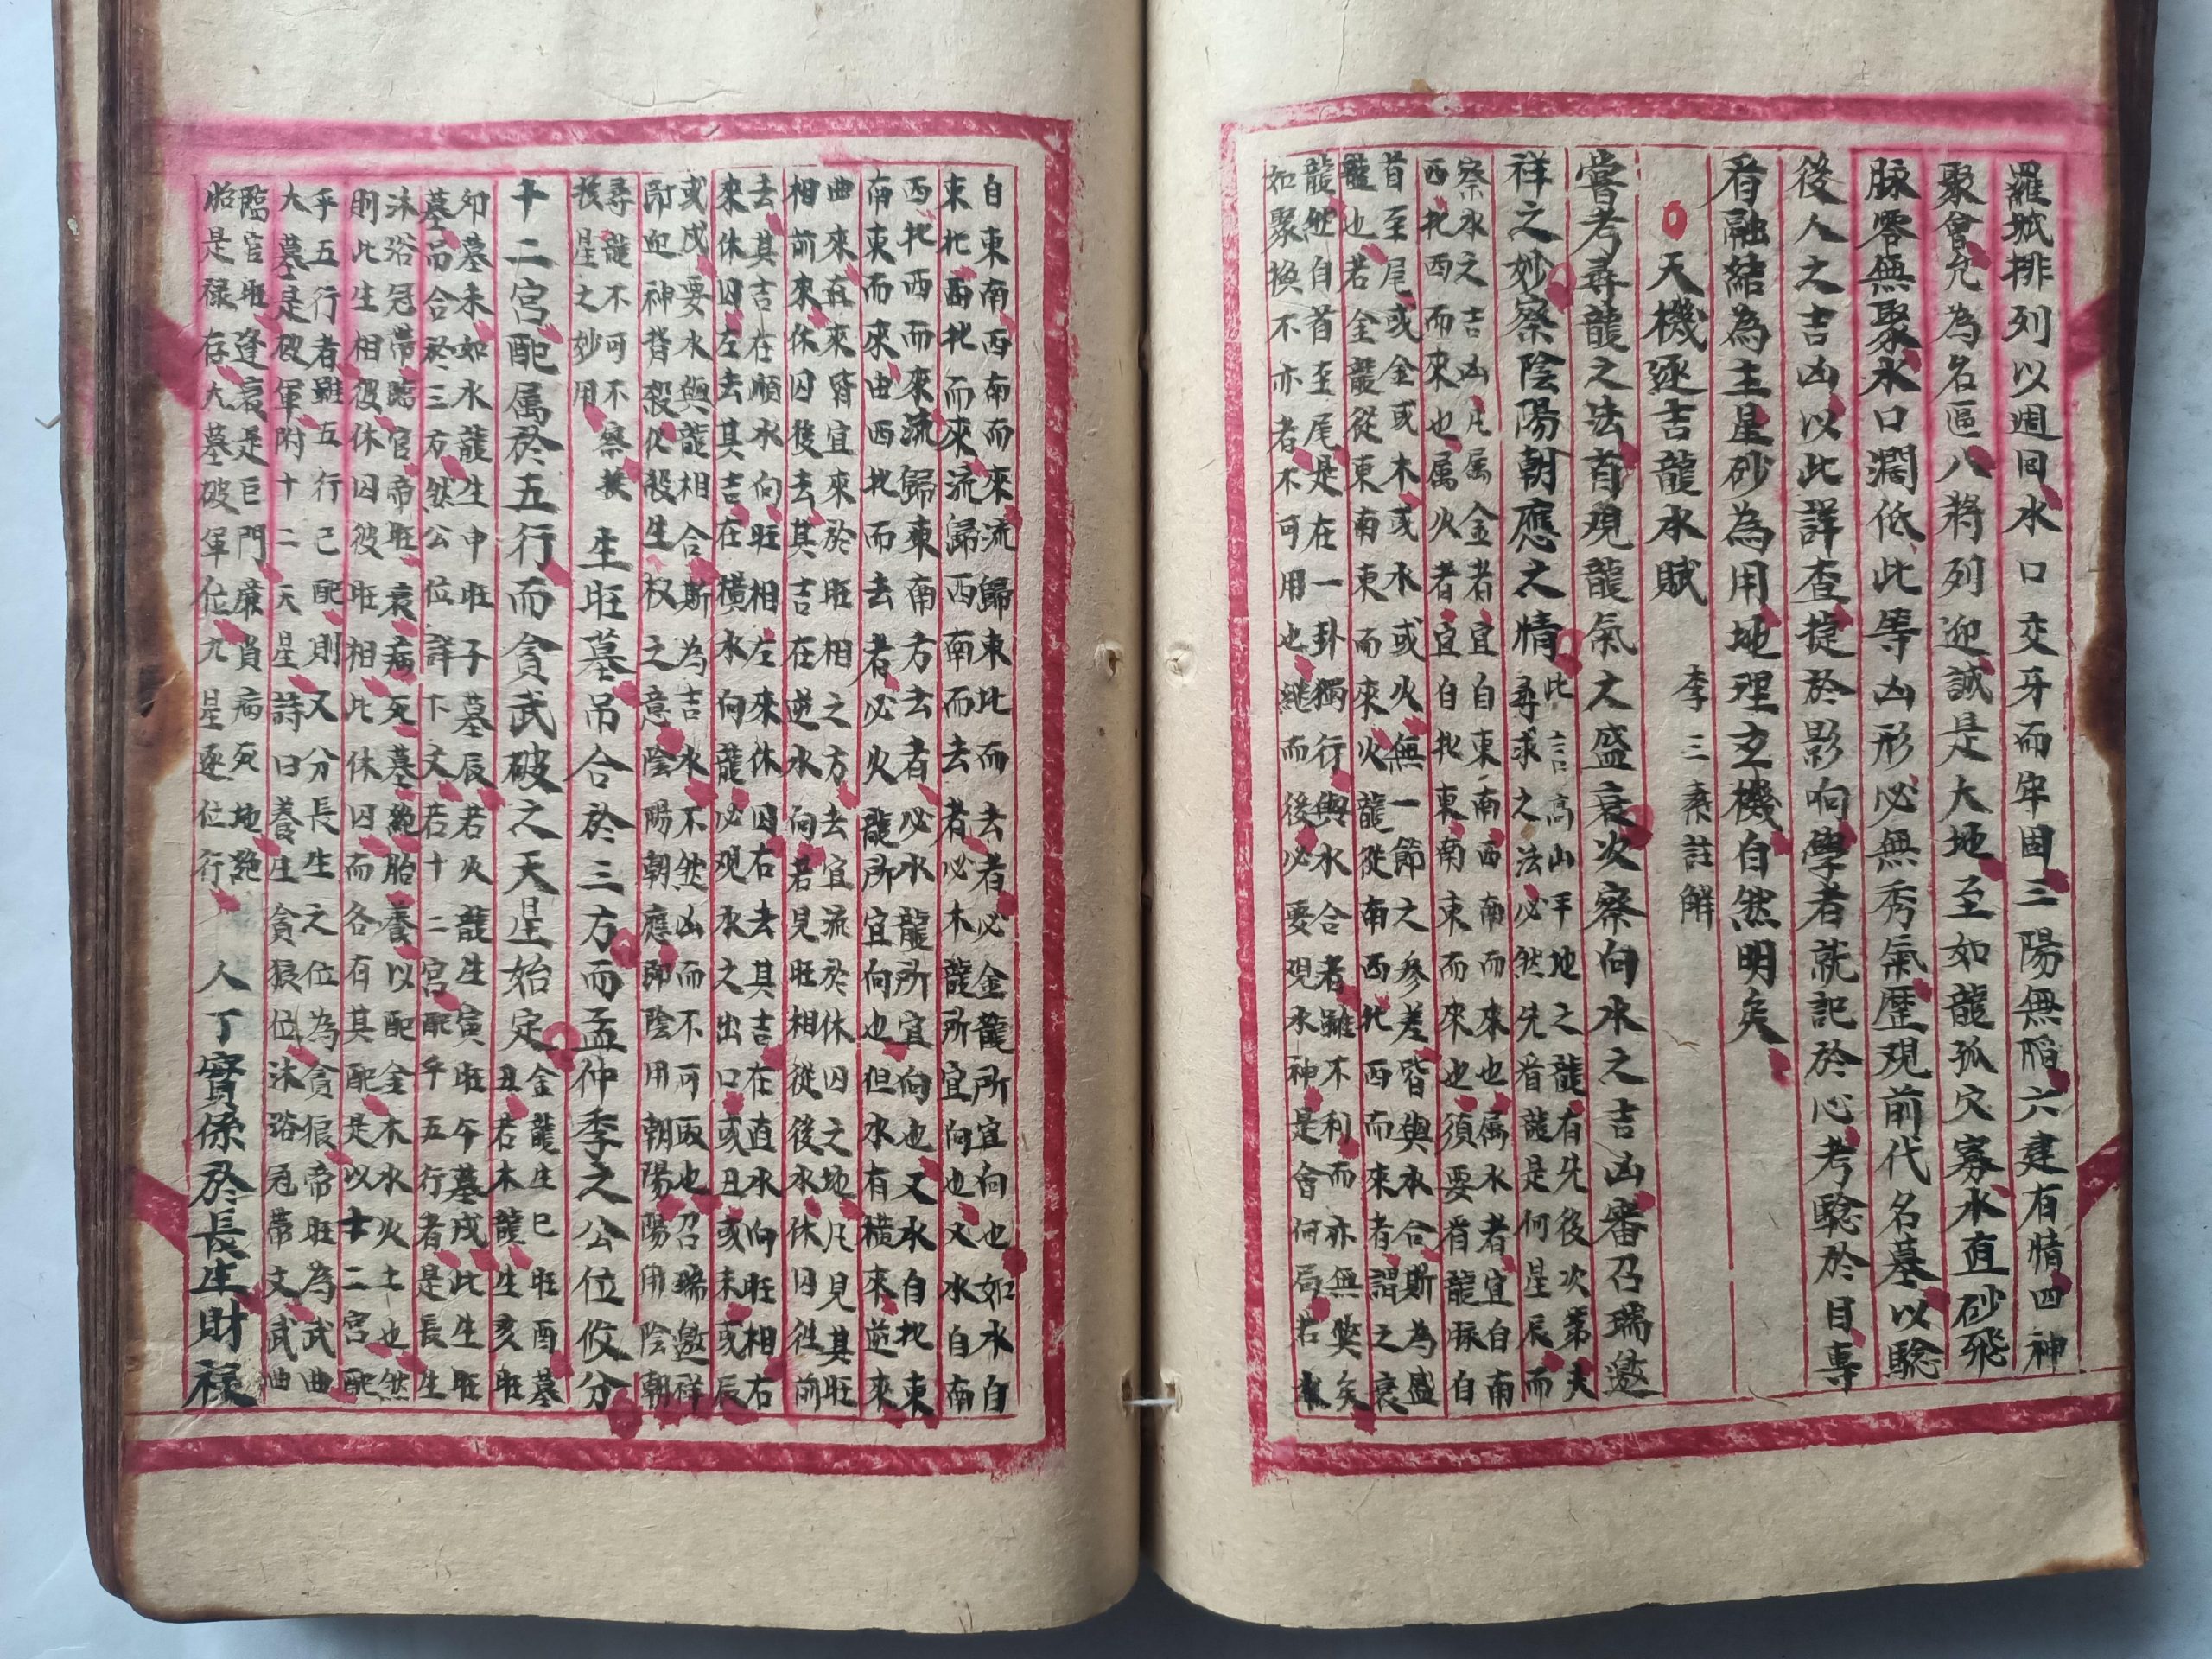 羅城排列以週回水口交牙而牢固三陽無陷六建有情四神
聚會允為名區八將列迎誠是大地至如龍孤穴寡水直砂飛
脉零無聚水口濶低此等凶形必無秀氣歷观前代名墓以騐
後人之吉凶以此詳查捷於影响學者就記於心考騐於目專
看融結為主星砂為用地理玄機自然明矣
天機逐吉龍水賦
李三素註解
嘗考尋龍之法首观龍氣大盛衰次察向水之吉凶審召瑞邀
祥之妙察陰陽朝應之情
此言高山平地之龍有先後次第夫
尋求之法必然先看龍是何星辰而
察水之吉凶凡属金者宜自東南西南而來也属水者宜自南
西北西而來也属火者宜自北東南東而來也須要看龍脉自
首至尾或金或木或水或火無一節之參差皆與水合斯為盛
龍也若金龍從東南東而來火龍從南西北西而來者謂之衰
龍然自首至尾是在一卦獨行與水合者雖不利而亦無獘矣
如聚換不亦者不可用也繼而後必要观水神是會何局若
自東南西南而來流歸東北而去者必金龍所宜向也如水自
東北西北而來流歸西南而去者必木龍所宜向也又水自南
西北西而來流歸東南方去者必水龍所宜向也又水自北東
南東而來由西北而去者必火龍所宜向也但水有橫來逆來
曲來直來皆宜來於旺相之方去宜流於休囚之地凡見其旺
相前來休囚後去其吉在逆水向若見旺相從後水休囚徃前
去其吉在順水向旺相左來休囚右去其吉在直水向旺相右
來休囚左去其吉在橫水向龍必观水之出口或丑或未或辰
或戌要水與龍相合斯為吉水不然凶而不可取也召瑞邀祥
即迎神背殺化殺生权之意陰陽朝應即陰用朝陽陽用陰朝
尋龍不可不察扶
扶星之妙用
生旺墓吊合於三方而孟仲季之公位攸分
十二宮配属於五行而貪武破之天星始定
金龍生巳旺酉墓
丑若木龍生亥旺
卯墓未如水龍生申旺子墓辰若火龍生寅旺午墓戌此生旺
墓吊合於三方然公位詳下文若十二宮配乎五行者是長生
沐浴冠帶臨官帝旺衰病死墓絶胎養以配金木水火土也然
則此生相彼休囚彼旺相此休囚而各有其配是以十二宮配
乎五行者雖五行已配則又分長生之位為貪狼帝旺為武曲
大墓是破軍附十二天星詩曰養生貪狼位沐浴冠帶文武曲
臨官旺逢衰是巨門廉貞病死地絶
胎是禄存大墓破軍位九星逐位行
人丁實係於長生財禄